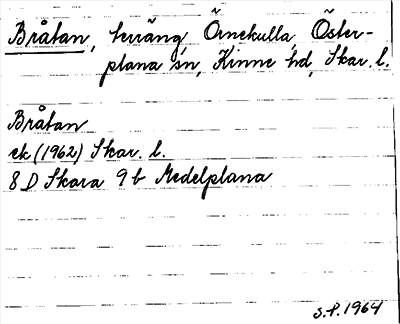 Bråtan, terräng Örnekulla, Öster-
plana sn, Kinne hd, Skar. l.
Bråtan
ek (1962) Skar. l.
8 D Skara 9 b Medelplana
S.P. 1964